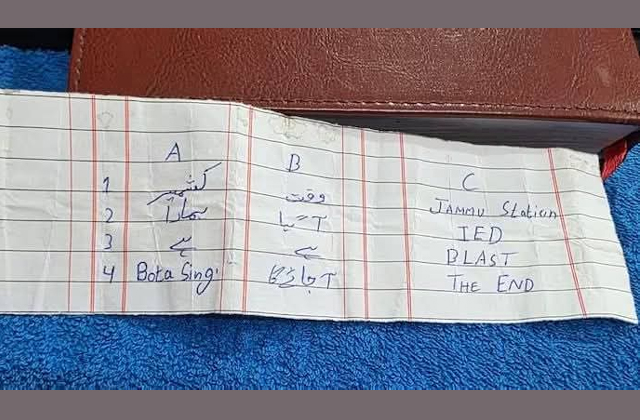 A B C
1 کشمیر وقت Jammu Station
2 ہمارا آ گیا IED
3 ہے ہے BLAST
4 Bota Sing THE END